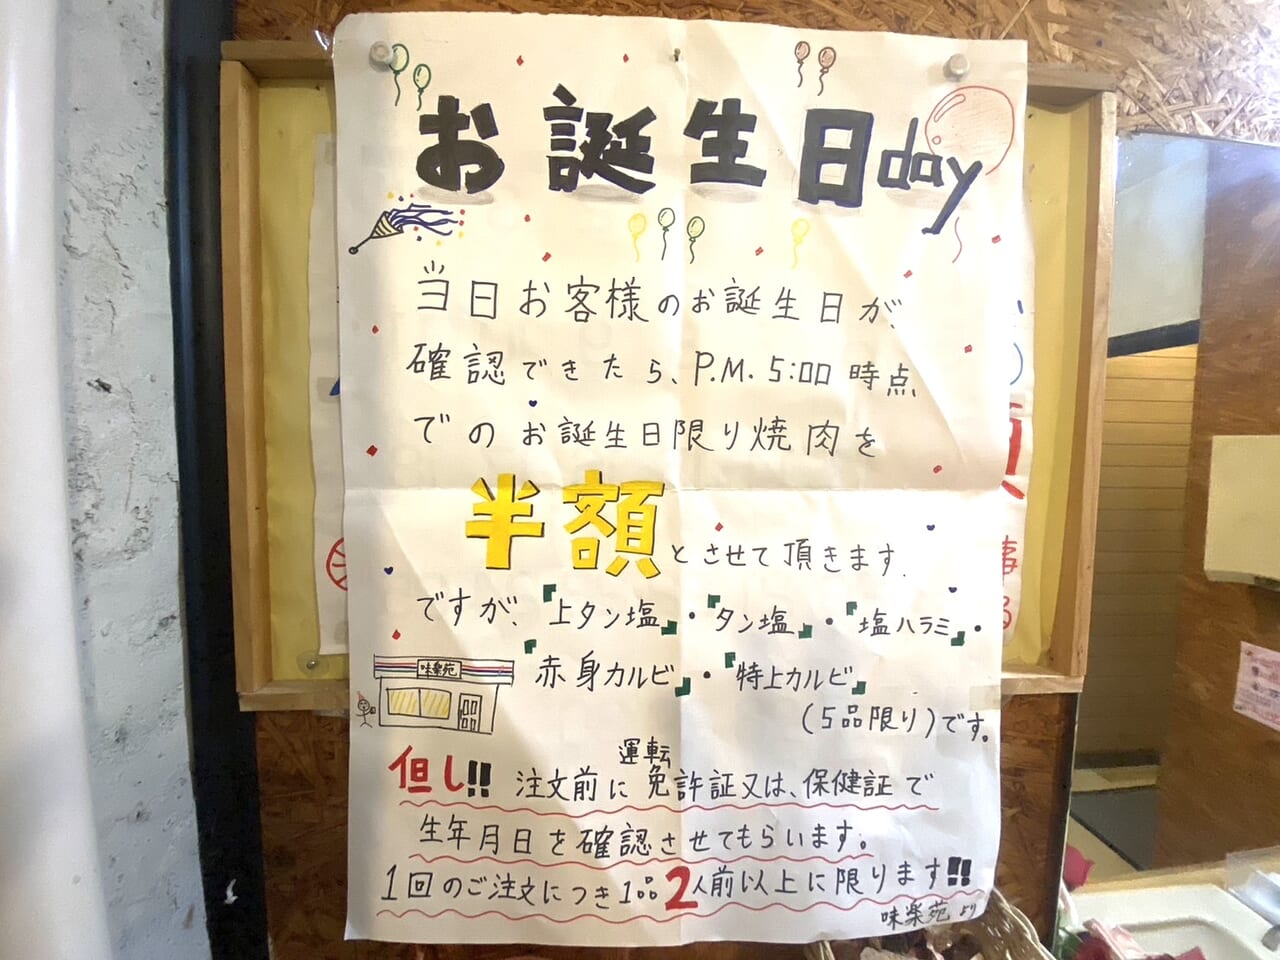 お誕生日day
当日お客様のお誕生日が、
確認できたら、P.M.5:00時点
でのお誕生日限り焼肉を
半額とさせて頂きます.
ですが、『上タン塩』・『タン塩』・『塩ハラミ』・
『赤身カルビ』・『特上カルビ』
(5品限り)です。
味楽苑
但し!! 注文前に運転免許証又は、保健証で
生年月日を確認させてもらいます。
1回のご注文につき1品2人前以上に限ります!!
味楽苑より